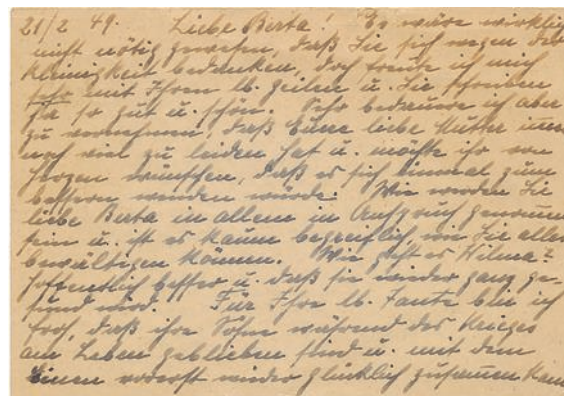 21/2 49. Liebe Berta! Es wäre wirklich
nicht nötig gewesen, daß Sie sich wegen der
Kleinigkeit bedanken, doch freute ich mich
sehr mit Ihren lb. Zeilen u. Sie schreiben
ja so gut u. schön. Sehr bedaure ich aber
zu vernehmen, daß Eure liebe Mutter immer
noch viel zu leiden hat u. möchte ihr von
Herzen wünschen, daß es sich einmal zum
bessern wenden würde. Wie werden Sie
liebe Berta in allem in Anspruch genommen
sein u. ist es kaum begreiflich wie Sie alles
bewältigen können. Wie geht es Wilma?
hoffentlich besser u. daß sie wieder ganz ge-
sund wird. Für Ihre lb. Tante bin ich
froh, daß ihre Söhne während des Krieges
am Leben geblieben sind u. mit dem
Einen vorerst wieder glücklich zusammen kam